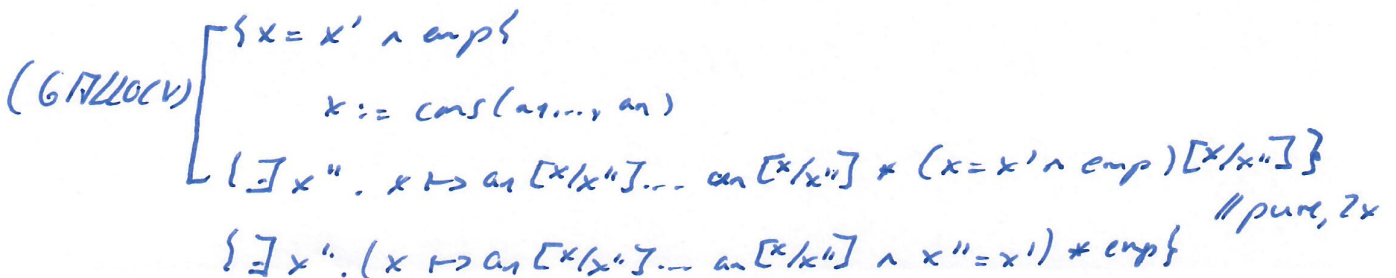 {x = x' ∧ emp}
(GALLOCV) x := cons(a1,..., an)
{∃ x". x ↦ a1[x/x"]... an[x/x"] * (x = x' ∧ emp)[x/x"]}
// pure, 2x
{∃ x". (x ↦ a1[x/x"]... an[x/x"] ∧ x" = x') * emp}